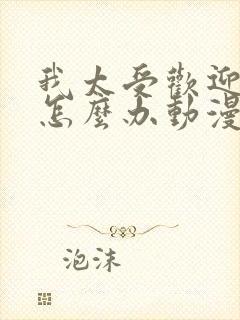 我太受歡迎
怎麼办動漫
泡沫